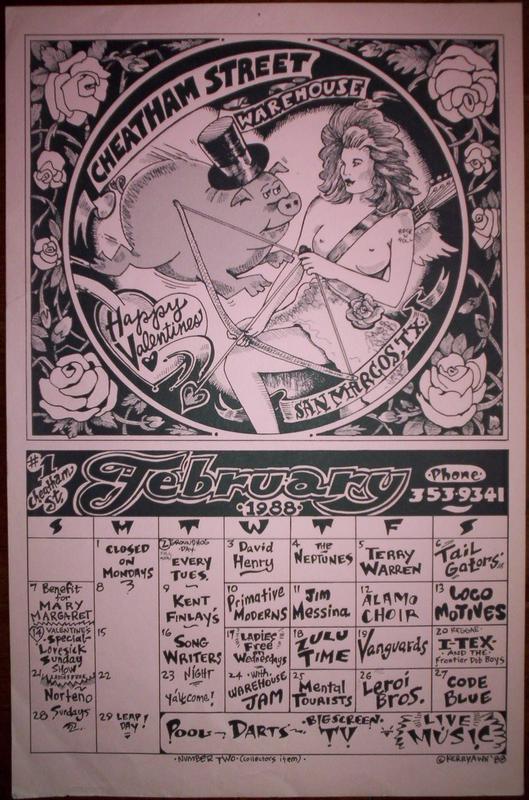 CHEATHAM STREET
WAREHOUSE
ROCK N ROLL
Happy
Valentines
SAN MARCOS, TX.
#1
Cheatham
St.
February
1988
Phone
353-9341
S M T W T F S
1 CLOSED
ON
MONDAYS
2 GROUNDHOG
DAY
EVERY
TUES.
3 David
Henry
4 THE
NEPTUNES
5 TERRY
WARREN
6 TAIL
GATORS
7 Benefit
for
MARY
MARGARET
8
9 KENT
FINLAY'S
10 Primative
MODERNS
11 JIM
Messina
12 ALAMO
CHOIR
13 LOCO
MOTIVES
14 VALENTINE'S
Special
Lovesick
Sunday
SHOW
15
16 SONG
WRITERS
17 LADIES
Free
on
Wednesdays
18 ZULU
TIME
19 Vanguards
20 REGGAE
I-TEX
AND THE
Frontier Dub Boys
21
Norteno
22
23 NIGHT
Ya'll come!
24 with
WAREHOUSE
JAM
25 Mental
TOURISTS
26 Leroi
Bros.
27 CODE
BLUE
28 Sundays
29 LEAP!
DAY
POOL - DARTS - BIG SCREEN
TV
LIVE
MUSIC
NUMBER TWO (collectors item)
© KERRY AWN '88